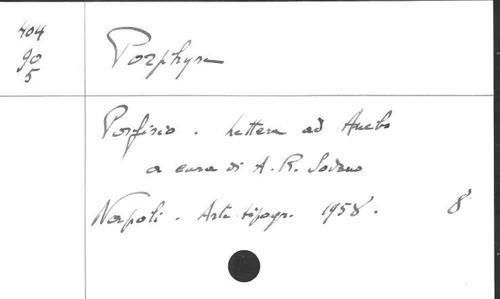 404
90
5
Porphyre
Porfirio. Lettera ad Anebo
a cura di A. R. Sodano
Napoli. Arte tipogr. 1958. 8